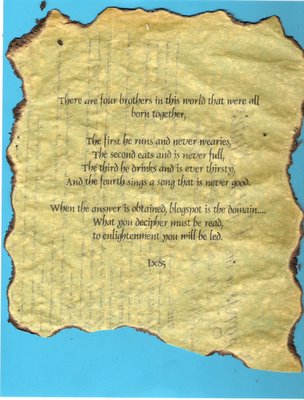 There are four brothers in this world that were all
born together,
The first he runs and never wearies,
The second eats and is never full,
The third he drinks and is ever thirsty,
And the fourth sings a song that is never good.
When the answer is obtained, blogspot is the domain....
What you decipher must be read,
to enlightenment you will be led.